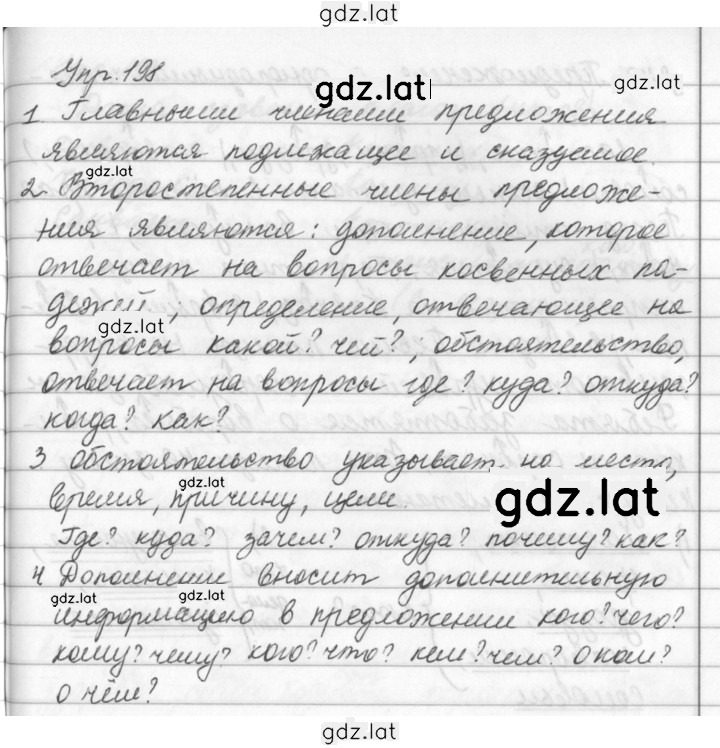 gdz.lat
Упр. 198
gdz.lat
1 Главными членами предложения
являются подлежащее и сказуемое.
gdz.lat
2. Второстепенные члены предложе-
ния являются: дополнение, которое
отвечает на вопросы косвенных па-
дежей; определение, отвечающее на
gdz.lat
вопросы какой? чей?; обстоятельство,
отвечает на вопросы где? куда? откуда?
когда? как?
3 обстоятельство указывает на место,
время, причину, цели
gdz.lat
gdz.lat
Где? куда? зачем? откуда? почему? как?
4 Дополнение вносит дополнительную
gdz.lat
gdz.lat
информацию в предложении кого? чего?
кому? чему? кого? что? кем? чем? о ком?
о чём?
gdz.lat